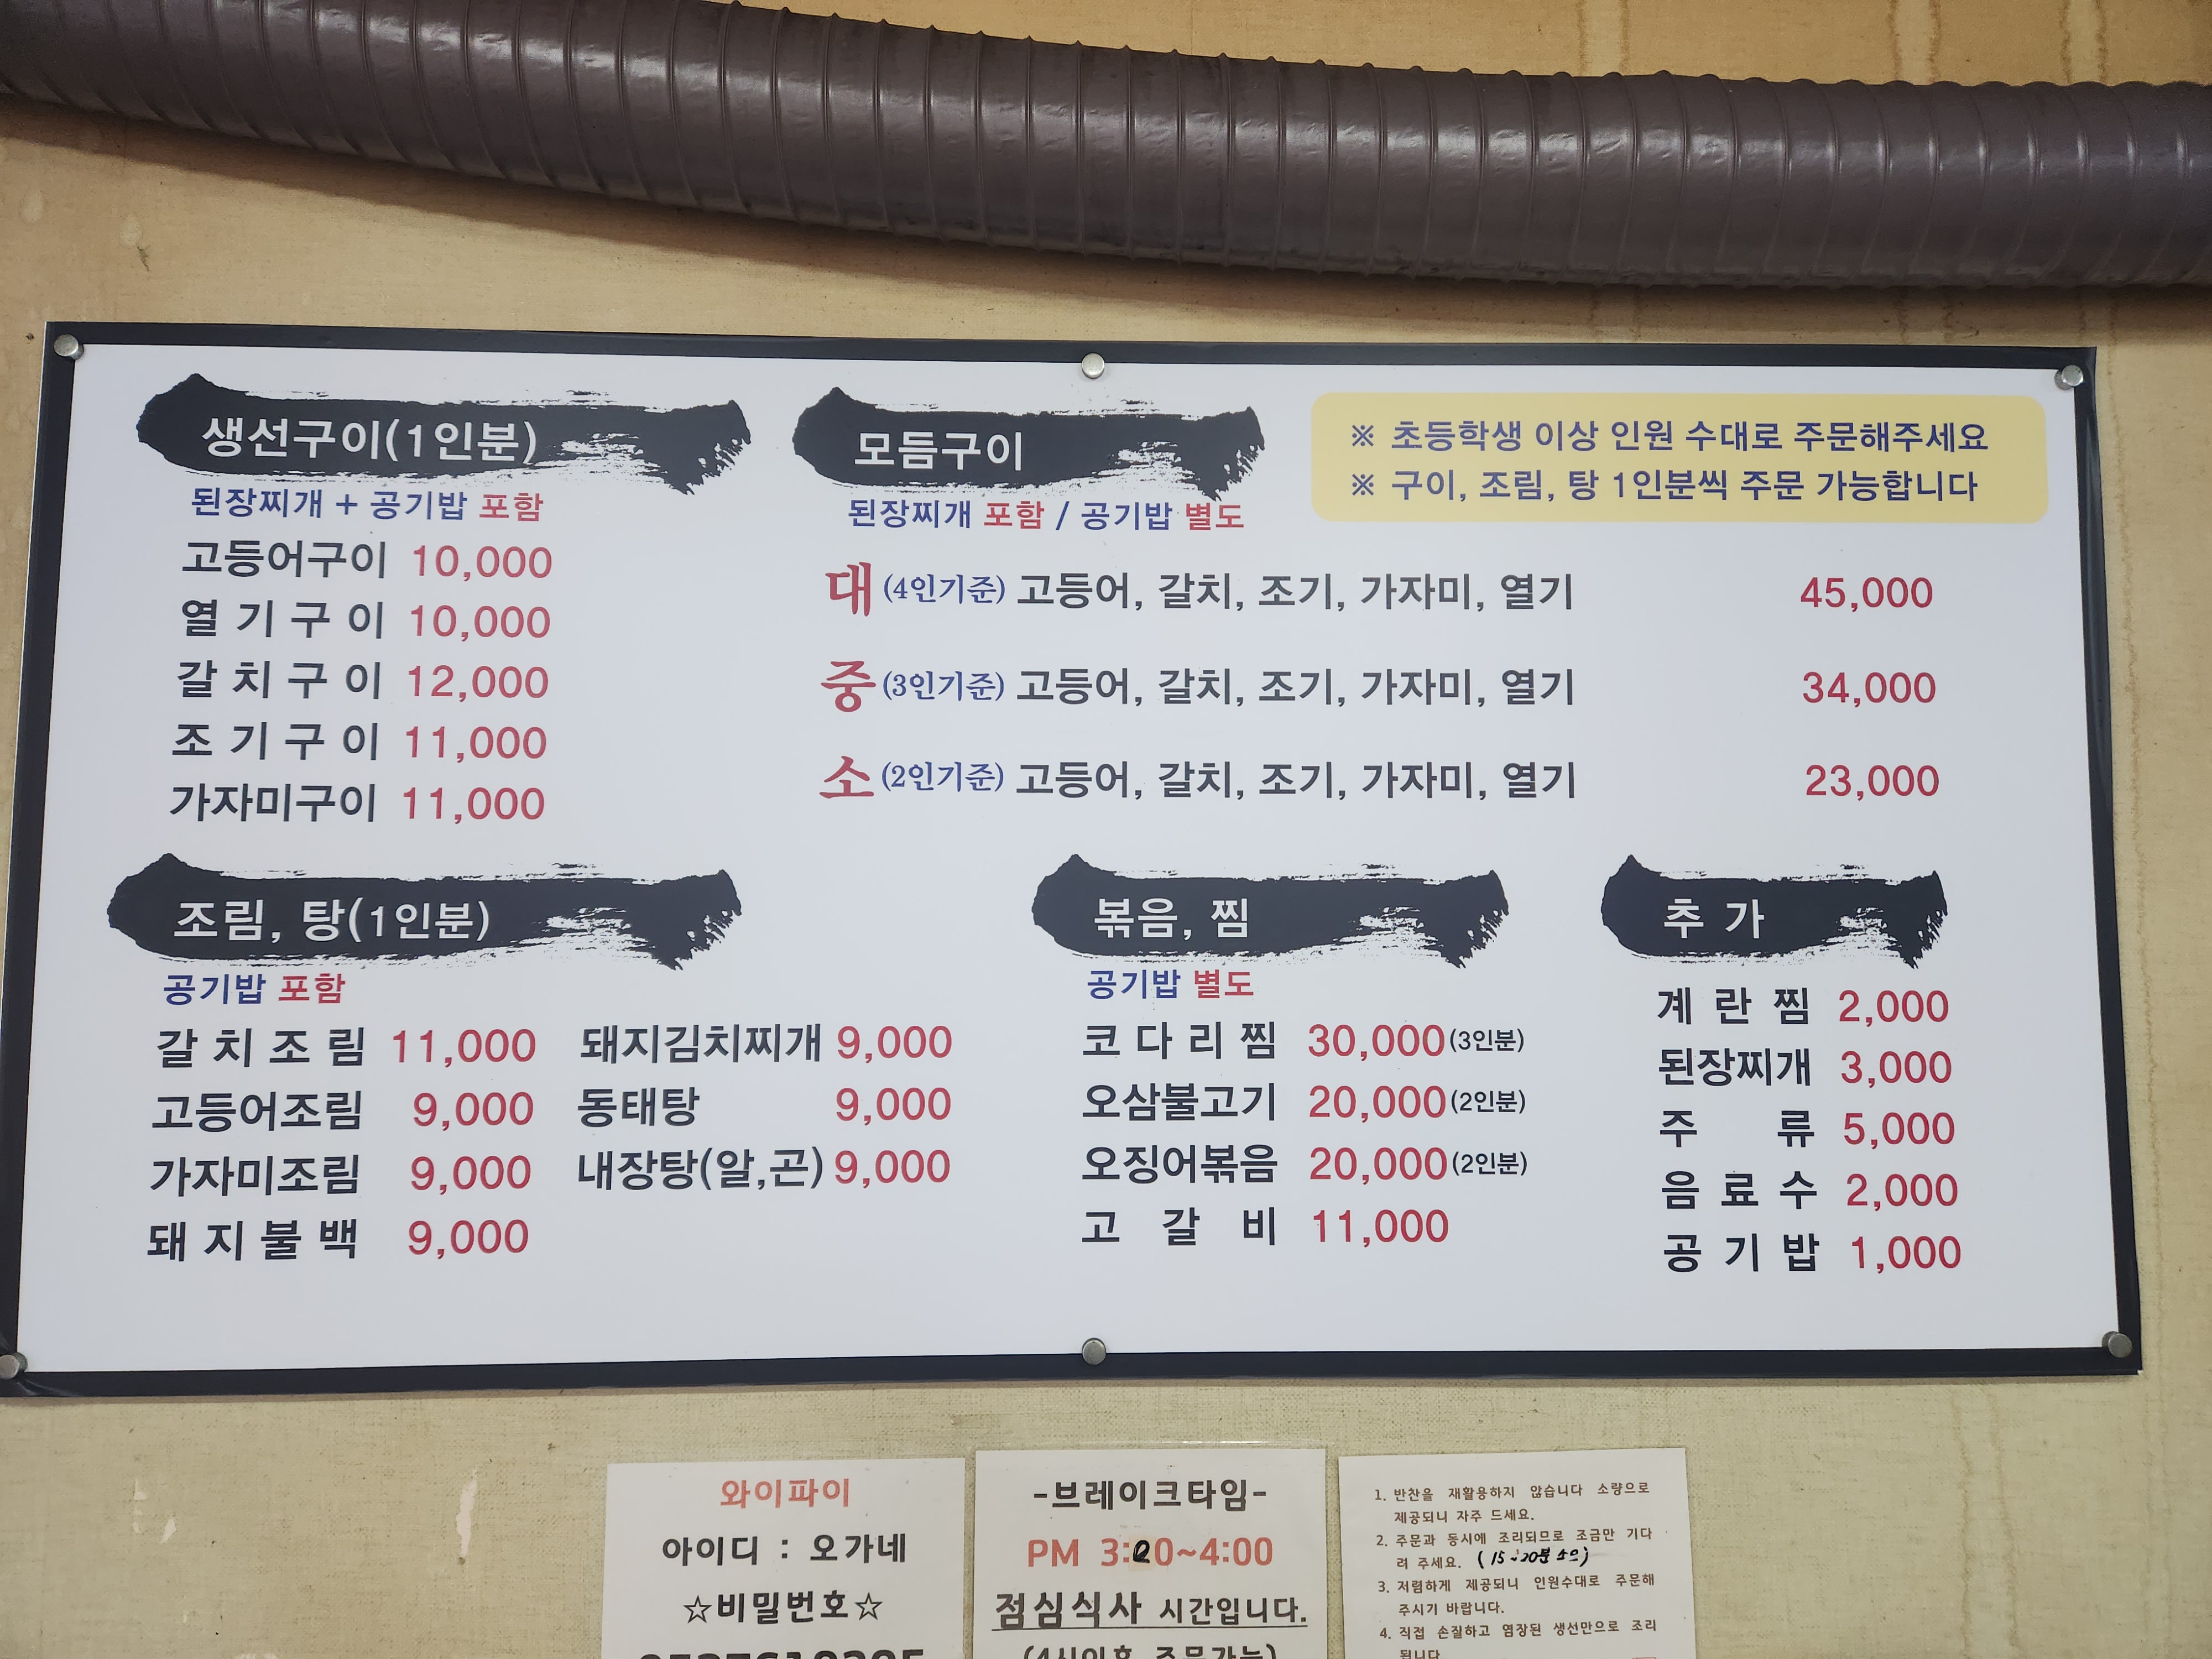 생선구이(1인분)
된장찌개 + 공기밥 포함
고등어구이 10,000
열기구이 10,000
갈치구이 12,000
조기구이 11,000
가자미구이 11,000
모듬구이
된장찌개 포함 / 공기밥 별도
※ 초등학생 이상 인원 수대로 주문해주세요
※ 구이, 조림, 탕 1인분씩 주문 가능합니다
대 (4인기준) 고등어, 갈치, 조기, 가자미, 열기 45,000
중 (3인기준) 고등어, 갈치, 조기, 가자미, 열기 34,000
소 (2인기준) 고등어, 갈치, 조기, 가자미, 열기 23,000
조림, 탕(1인분)
공기밥 포함
갈치조림 11,000
고등어조림 9,000
가자미조림 9,000
돼지불백 9,000
돼지김치찌개 9,000
동태탕 9,000
내장탕(알,곤) 9,000
볶음, 찜
공기밥 별도
코다리찜 30,000(3인분)
오삼불고기 20,000(2인분)
오징어볶음 20,000(2인분)
고갈비 11,000
추가
계란찜 2,000
된장찌개 3,000
주류 5,000
음료수 2,000
공기밥 1,000
와이파이
아이디 : 오가네
☆비밀번호☆
-브레이크타임-
PM 3:20~4:00
점심식사 시간입니다.
(4시이후 주문가능)
1. 반찬을 재활용하지 않습니다 소량으로
제공되니 자주 드세요.
2. 주문과 동시에 조리되므로 조금만 기다
려 주세요. (15~20분 소요)
3. 저렴하게 제공되니 인원수대로 주문해
주시기 바랍니다.
4. 직접 손질하고 염장된 생선만으로 조리
됩니다.